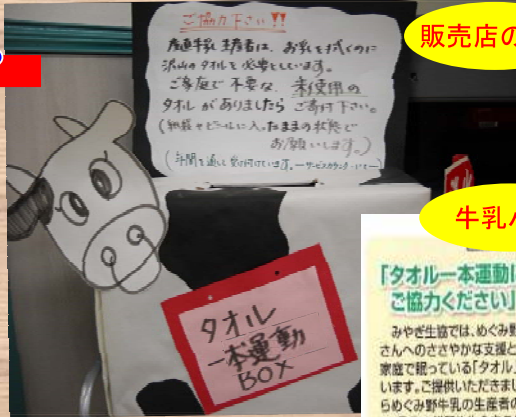 ご協力下さい!!
産直牛乳生産者は、お乳を拭くのに
沢山のタオルを必要としています。
ご家庭で不要な、未使用の
タオルがありましたらご寄付下さい。
(紙箱やビニールに入ったままの状態で
お願いします。)
(年間を通して受け付けています。―サービスカウンターにて―)
タオル
一本運動
BOX
販売店の
牛乳パ
「タオル一本運動に
ご協力ください」
みやぎ生協では、めぐみ野
さんへのささやかな支援と
家庭で眠っている「タオル」
います。ご提供いただきまし
らめぐみ野牛乳の生産者の